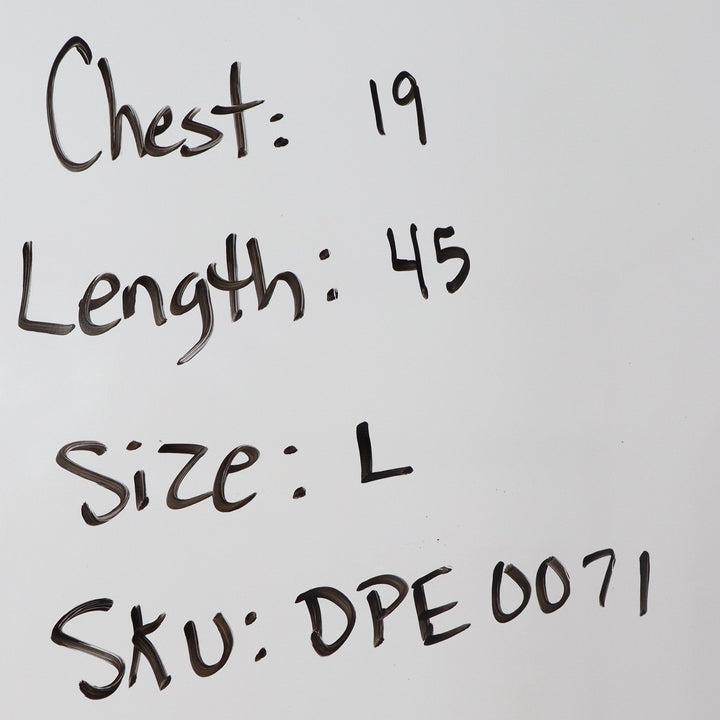 Chest: 19
Length: 45
Size: L
Sku: DPE 0071